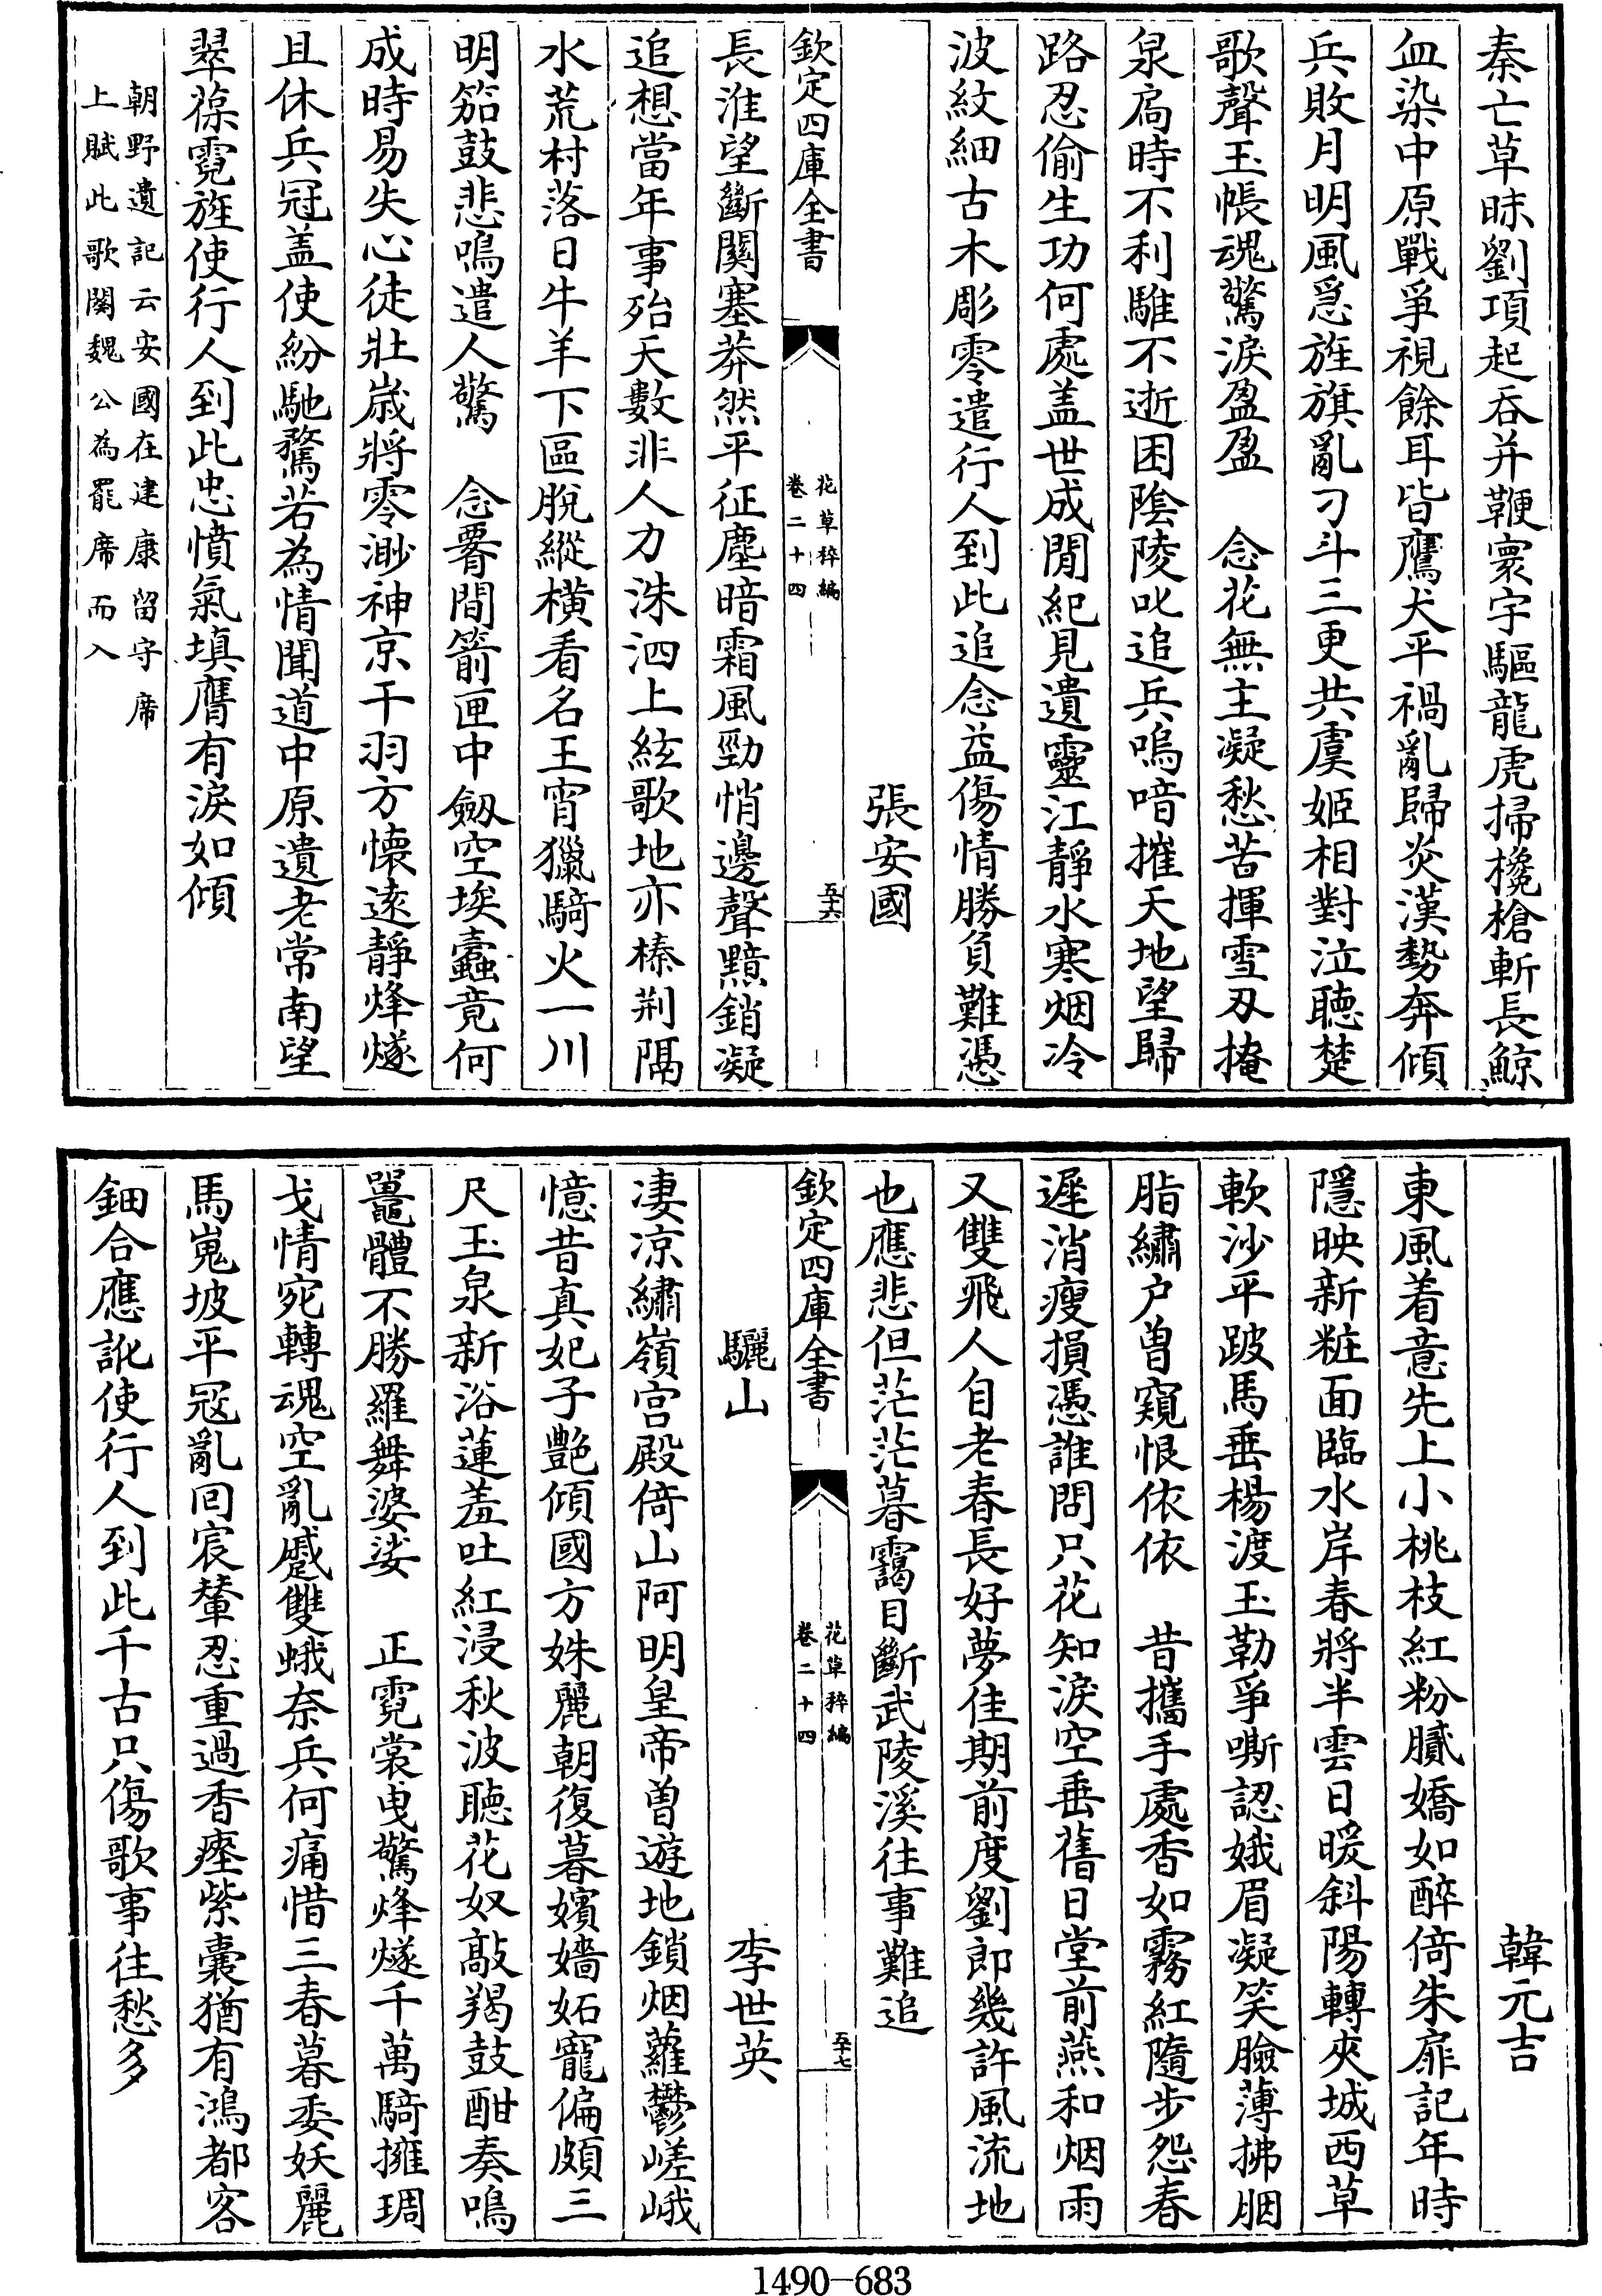 秦亡草昧劉項起吞并鞭寰宇驅龍虎掃欃槍斬長鯨
血染中原戰爭視餘耳皆鷹犬平禍亂歸炎漢勢奔傾
兵敗月明風急旌旗亂刁斗三更共虞姬相對泣聽楚
歌聲玉帳魂驚淚盈盈　念花無主凝愁苦揮雪刃掩
泉扃時不利騅不逝困陰陵叱追兵嗚喑摧天地望歸
路忍偷生功何處盖世成閒紀見遺靈江靜水寒烟冷
波紋細古木彫零遣行人到此追念益傷情勝負難憑
張安國
欽定四庫全書
花草稡編
卷二十四
五十六
長淮望斷關塞莽然平征塵暗霜風勁悄邊聲黯銷凝
追想當年事殆天數非人力洙泗上絃歌地亦榛荆隔
水荒村落日牛羊下區脫縱橫看名王宵獵騎火一川
明笳鼓悲鳴遣人驚　念腰間箭匣中劔空埃蠹竟何
成時易失心徒壯歳將零渺神京干羽方懷逺靜烽燧
且休兵冠盖使紛馳騖若為情聞道中原遺老常南望
翠葆霓旌使行人到此忠憤氣填膺有淚如傾
朝野遺記云安國在建康留守席
上賦此歌闋魏公為罷席而入
韓元吉
東風着意先上小桃枝紅粉膩嬌如醉倚朱扉記年時
隱映新粧面臨水岸春將半雲日暖斜陽轉夾城西草
軟沙平跛馬垂楊渡玉勒爭嘶認娥眉凝笑臉薄拂胭
脂繡户曽窺恨依依　昔攜手處香如霧紅隨步怨春
遲消瘦損憑誰問只花知淚空垂舊日堂前燕和烟雨
又雙飛人自老春長好夢佳期前度劉郎幾許風流地
也應悲但茫茫暮靄目斷武陵溪往事難追
欽定四庫全書
花草稡編
卷二十四
五十七
驪山　李世英
凄凉繡嶺宫殿倚山阿明皇帝曽遊地鎖烟蘿鬱嵯峨
憶昔真妃子艷傾國方姝麗朝復暮嬪嬙妬寵偏頗三
尺玉泉新浴蓮羞吐紅浸秋波聽花奴敲羯鼓酣奏鳴
鼉體不勝羅舞婆娑　正霓裳曳驚烽燧千萬騎擁琱
戈情宛轉魂空亂蹙雙蛾奈兵何痛惜三春暮委妖麗
馬嵬坡平冦亂回宸輦忍重過香瘞紫囊猶有鴻都客
鈿合應訛使行人到此千古只傷歌事往愁多
1490—683